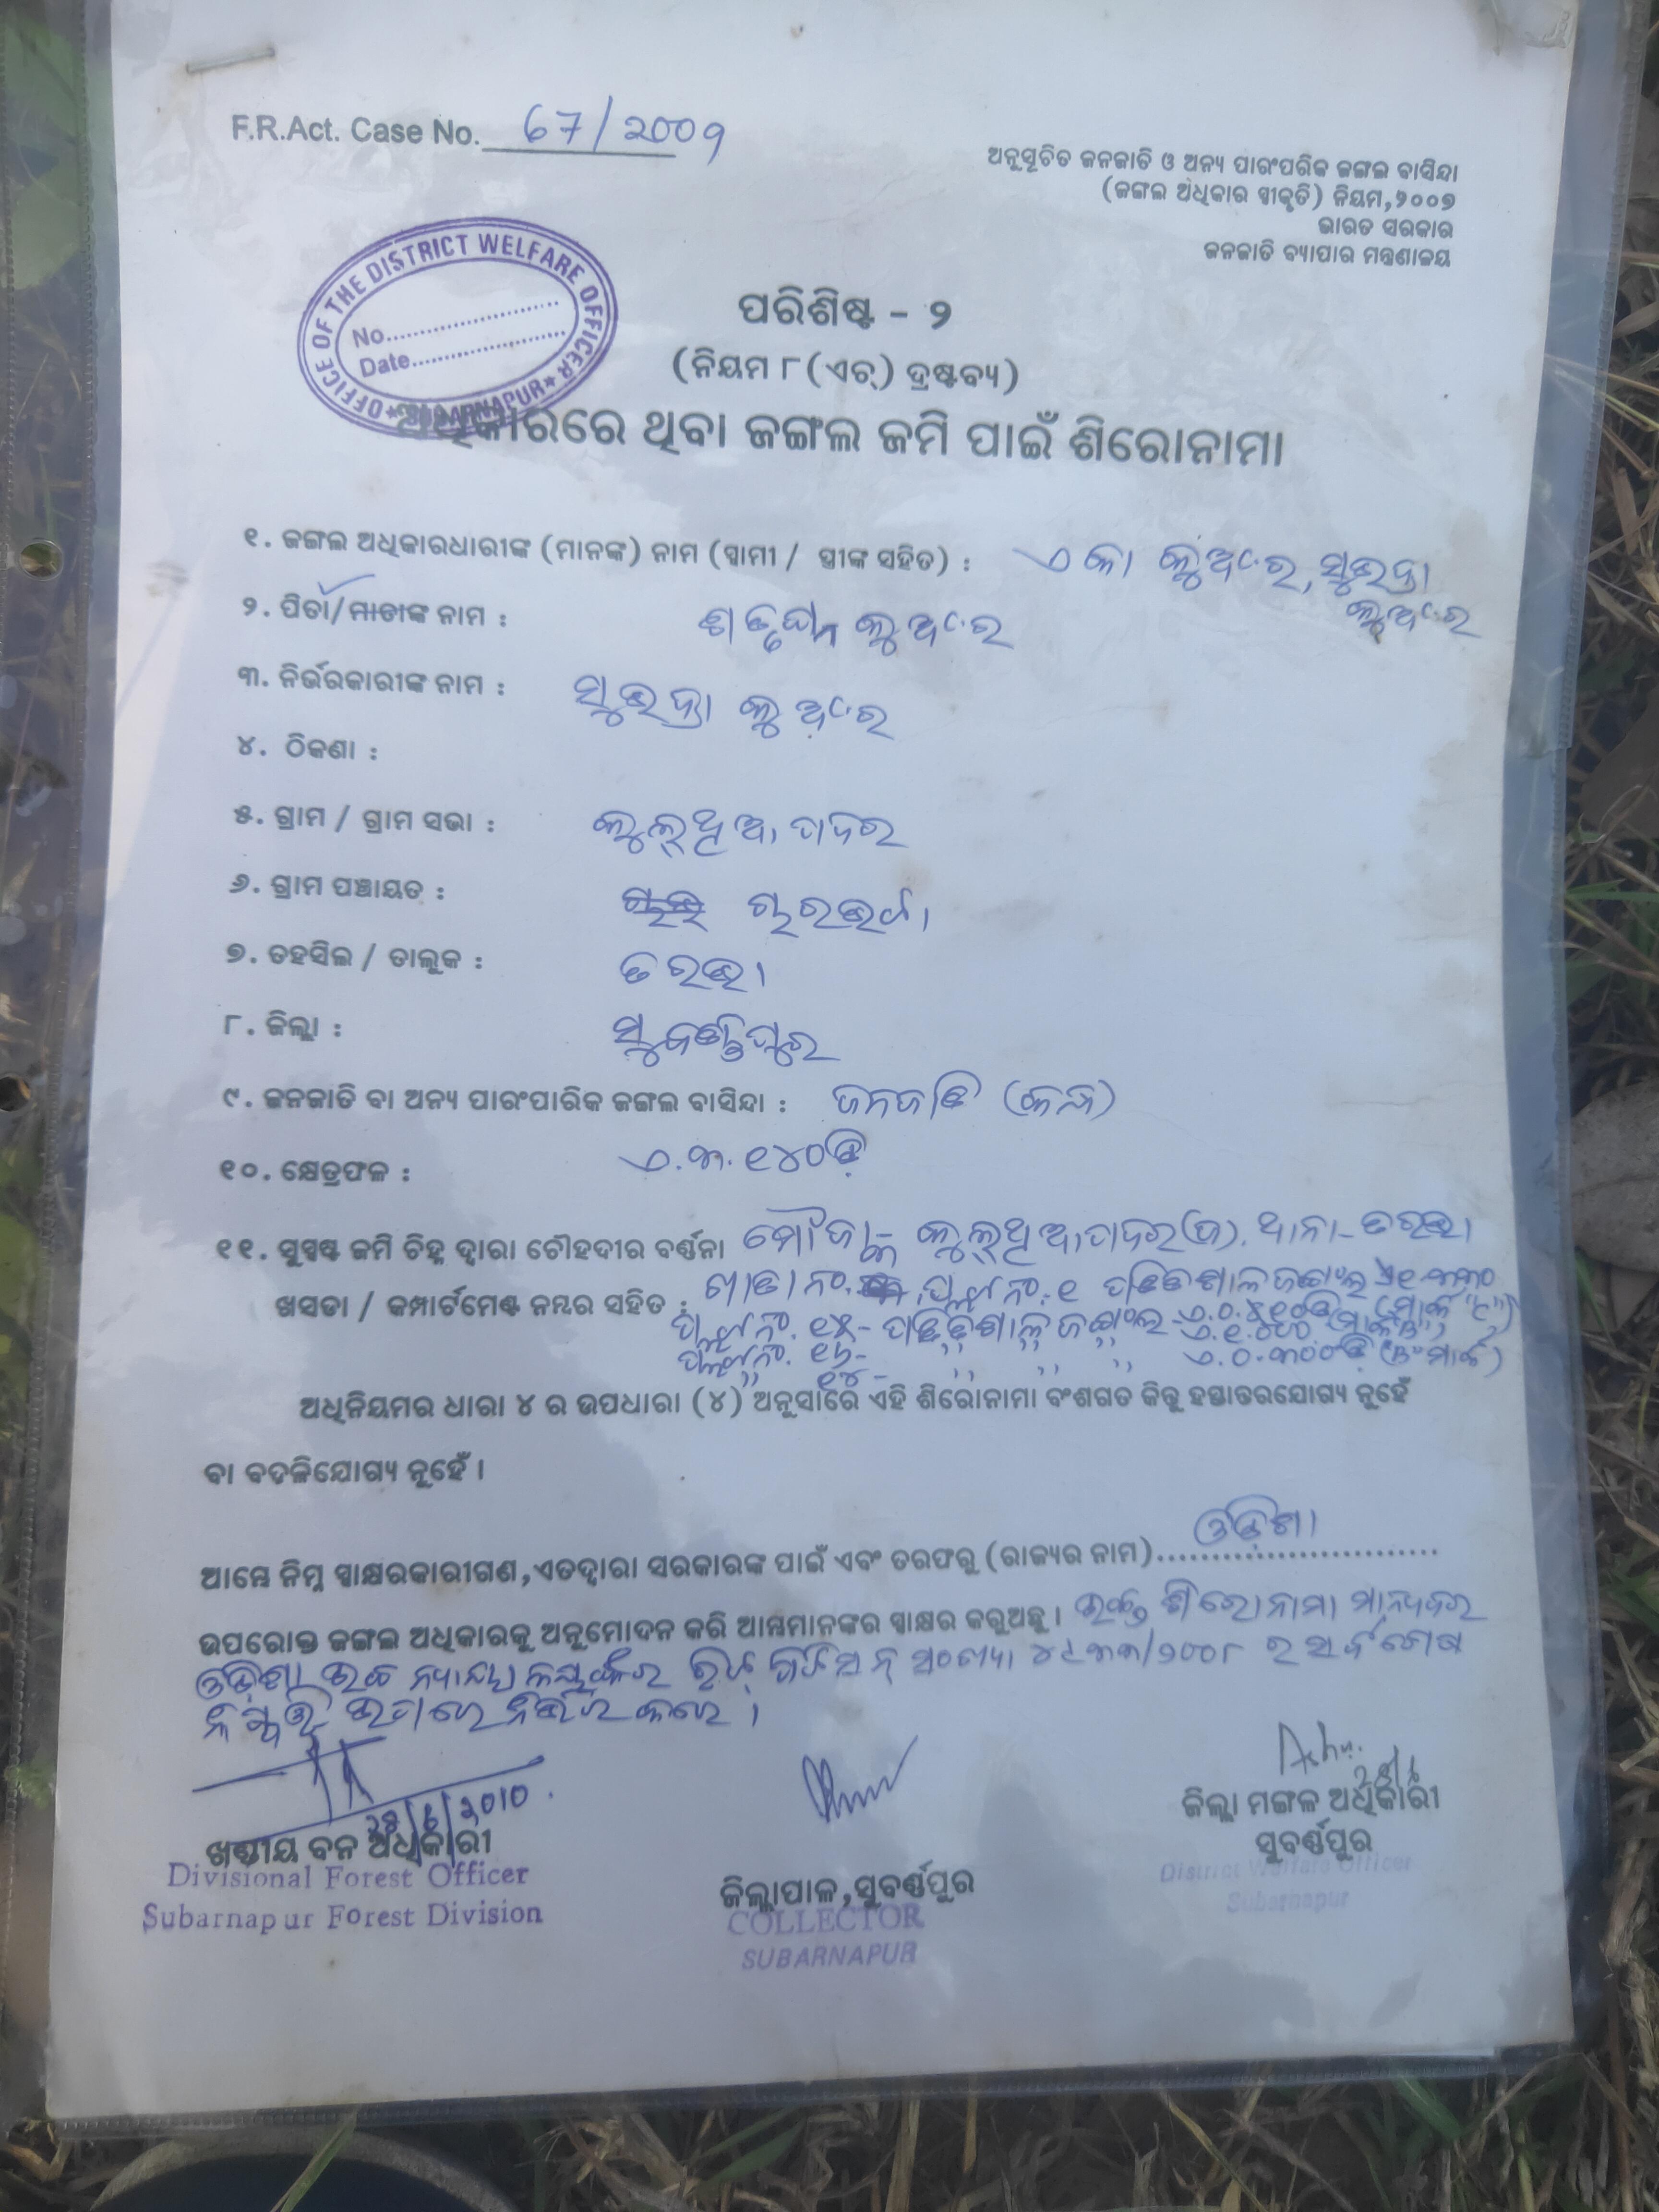 F.R.Act. Case No. 67/2009
ଅନୁସୂଚିତ ଜନଜାତି ଓ ଅନ୍ୟ ପାରଂପରିକ ଜଙ୍ଗଲ ବାସିନ୍ଦା
(ଜଙ୍ଗଲ ଅଧିକାର ସ୍ୱୀକୃତି) ନିୟମ,୨୦୦୭
ଭାରତ ସରକାର
ଜନଜାତି ବ୍ୟାପାର ମନ୍ତ୍ରଣାଳୟ
OFFICE OF THE DISTRICT WELFARE OFFICER
No.
Date
SUBARNAPUR
ପରିଶିଷ୍ଟ - ୨
(ନିୟମ ୮ (ଏଚ୍) ଦ୍ରଷ୍ଟବ୍ୟ)
ଅଧିକାରରେ ଥିବା ଜଙ୍ଗଲ ଜମି ପାଇଁ ଶିରୋନାମା
୧. ଜଙ୍ଗଲ ଅଧିକାରଧାରୀଙ୍କ (ମାନଙ୍କ) ନାମ (ସ୍ୱାମୀ / ସ୍ତ୍ରୀଙ୍କ ସହିତ) : ଏକା କୁଅଁର,
କୁଅଁର
୨. ପିତା/ମାତାଙ୍କ ନାମ : କୁଅଁର
୩. ନିର୍ଭରକାରୀଙ୍କ ନାମ : କୁଅଁର
୪. ଠିକଣା :
୫. ଗ୍ରାମ / ଗ୍ରାମ ସଭା : କୁଲ୍‌ଥିଆ ପାଦର
୬. ଗ୍ରାମ ପଞ୍ଚାୟତ :
୭. ତହସିଲ / ତାଲୁକ : ତରଭା
୮. ଜିଲ୍ଲା : ସୁବର୍ଣ୍ଣପୁର
୯. ଜନଜାତି ବା ଅନ୍ୟ ପାରଂପାରିକ ଜଙ୍ଗଲ ବାସିନ୍ଦା : ଜନଜାତି (କନ୍ଧ)
୧୦. କ୍ଷେତ୍ରଫଳ : ଏ.୩.୧୪୦ଡି
୧୧. ସୁସ୍ପଷ୍ଟ ଜମି ଚିହ୍ନ ଦ୍ୱାରା ଚୌହଦୀର ବର୍ଣ୍ଣନା ମୌଜା- କୁଲ୍‌ଥିଆପାଦର(ଜ). ଥାନା-ତରଭା
ଖସଡା / କମ୍ପାର୍ଟମେଣ୍ଟ ନମ୍ବର ସହିତ : ଖାତା ନଂ. ପ୍ଲଟ ନଂ. ୧
ପ୍ଲଟ ନଂ. ୧୫-
ପ୍ଲଟ ନଂ. ଏ.୦.୩୦୦ଡି
ଅଧିନିୟମର ଧାରା ୪ ର ଉପଧାରା (୪) ଅନୁସାରେ ଏହି ଶିରୋନାମା ବଂଶଗତ କିନ୍ତୁ ହସ୍ତାନ୍ତରଯୋଗ୍ୟ ନୁହେଁ
ବା ବଦଳିଯୋଗ୍ୟ ନୁହେଁ ।
ଆମ୍ଭେ ନିମ୍ନ ସ୍ୱାକ୍ଷରକାରୀଗଣ,ଏତଦ୍ୱାରା ସରକାରଙ୍କ ପାଇଁ ଏବଂ ତରଫରୁ (ରାଜ୍ୟର ନାମ) ଓଡ଼ିଶା
ଉପରୋକ୍ତ ଜଙ୍ଗଲ ଅଧିକାରକୁ ଅନୁମୋଦନ କରି ଆମ୍ଭମାନଙ୍କର ସ୍ୱାକ୍ଷର କରୁଅଛୁ । ଉକ୍ତ ଶିରୋନାମା ମାନ୍ୟବର
ଓଡ଼ିଶା ଉଚ୍ଚ ନ୍ୟାୟାଳୟଙ୍କର ରିଟ୍ ପିଟିସନ୍ ସଂଖ୍ୟା ୪୯୩୩/୨୦୦୮ ର ସର୍ବଶେଷ
ନିଷ୍ପତ୍ତି ଉପରେ ନିର୍ଭର କରେ ।
ଖଣ୍ଡୀୟ ବନ ଅଧିକାରୀ
Divisional Forest Officer
Subarnapur Forest Division
ଜିଲ୍ଲାପାଳ,ସୁବର୍ଣ୍ଣପୁର
COLLECTOR
SUBARNAPUR
ଜିଲ୍ଲା ମଙ୍ଗଳ ଅଧିକାରୀ
ସୁବର୍ଣ୍ଣପୁର
District Welfare Officer
Subarnapur